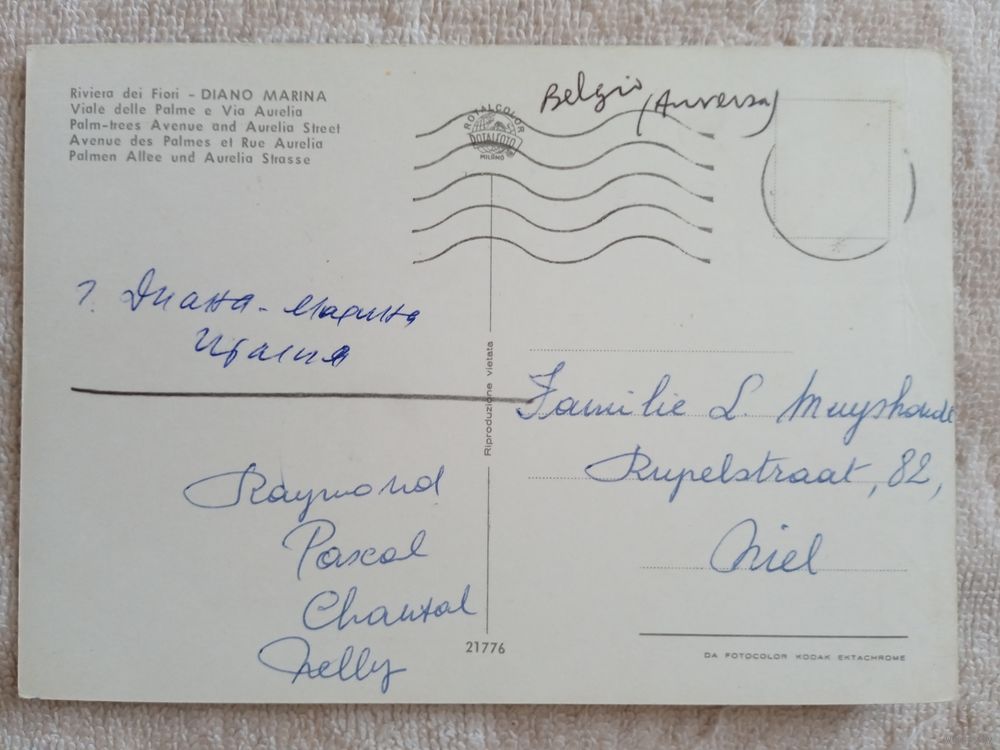 Riviera dei Fiori - DIANO MARINA
Viale delle Palme e Via Aurelia
Palm-trees Avenue and Aurelia Street
Avenue des Palmes et Rue Aurelia
Palmen Allee und Aurelia Strasse
Belgio (Anversa)
ROTALCOLOR
ROTALFOTO
MILANO
г. Диана-Марина
Италия
Riproduzione vietata
Familie L. Muyshondt
Rupelstraat, 82,
Niel
Raymond
Pascal
Chantal
Nelly
21776
DA FOTOCOLOR KODAK EKTACHROME